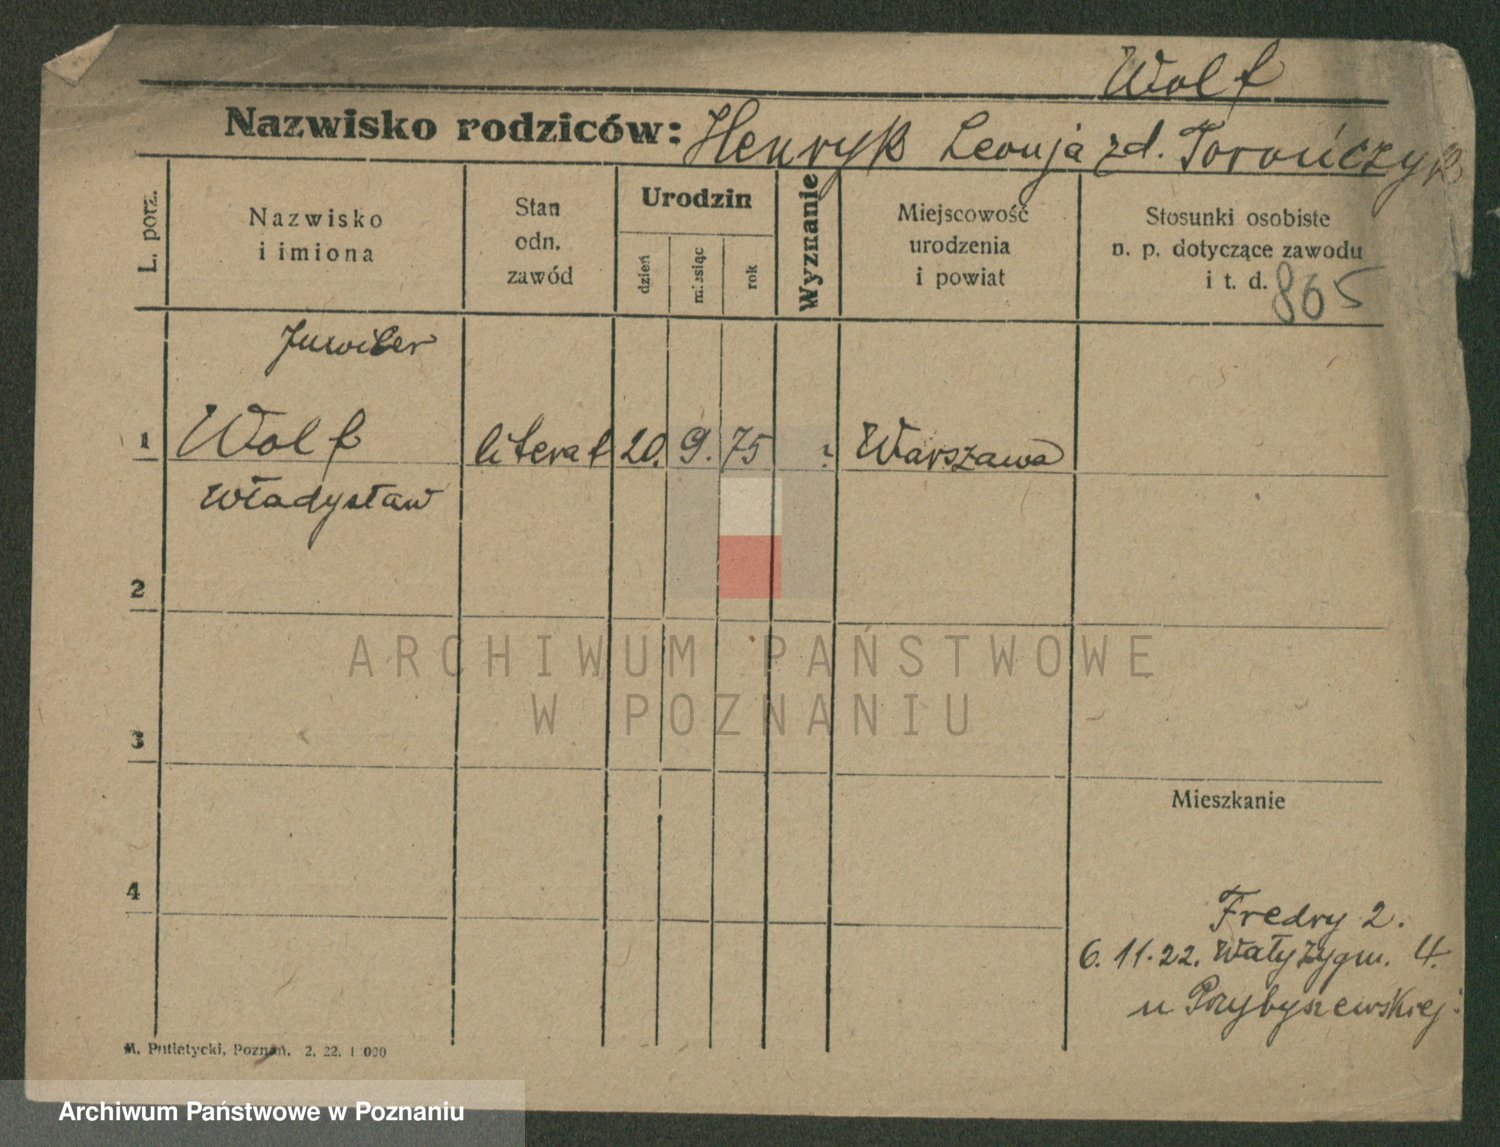 Wolf
Nazwisko rodziców: Henryk Leonja zd. Torończyk
L. porz.
Nazwisko i imiona
Stan odn. zawód
Urodzin
dzień
miesiąc
rok
Wyznanie
Miejscowość urodzenia i powiat
Stosunki osobiste n. p. dotyczące zawodu i t. d.
865
1
Wolf
literat
20.
9.
75
?
Warszawa
Władysław
2
3
4
ARCHIWUM PAŃSTWOWE
W POZNANIU
Mieszkanie
Fredry 2.
6.11.22. Wały Zygm. 4.
u Przybyszewskiej.
M. Putiatycki, Poznań. 2. 22. 1 000
Archiwum Państwowe w Poznaniu